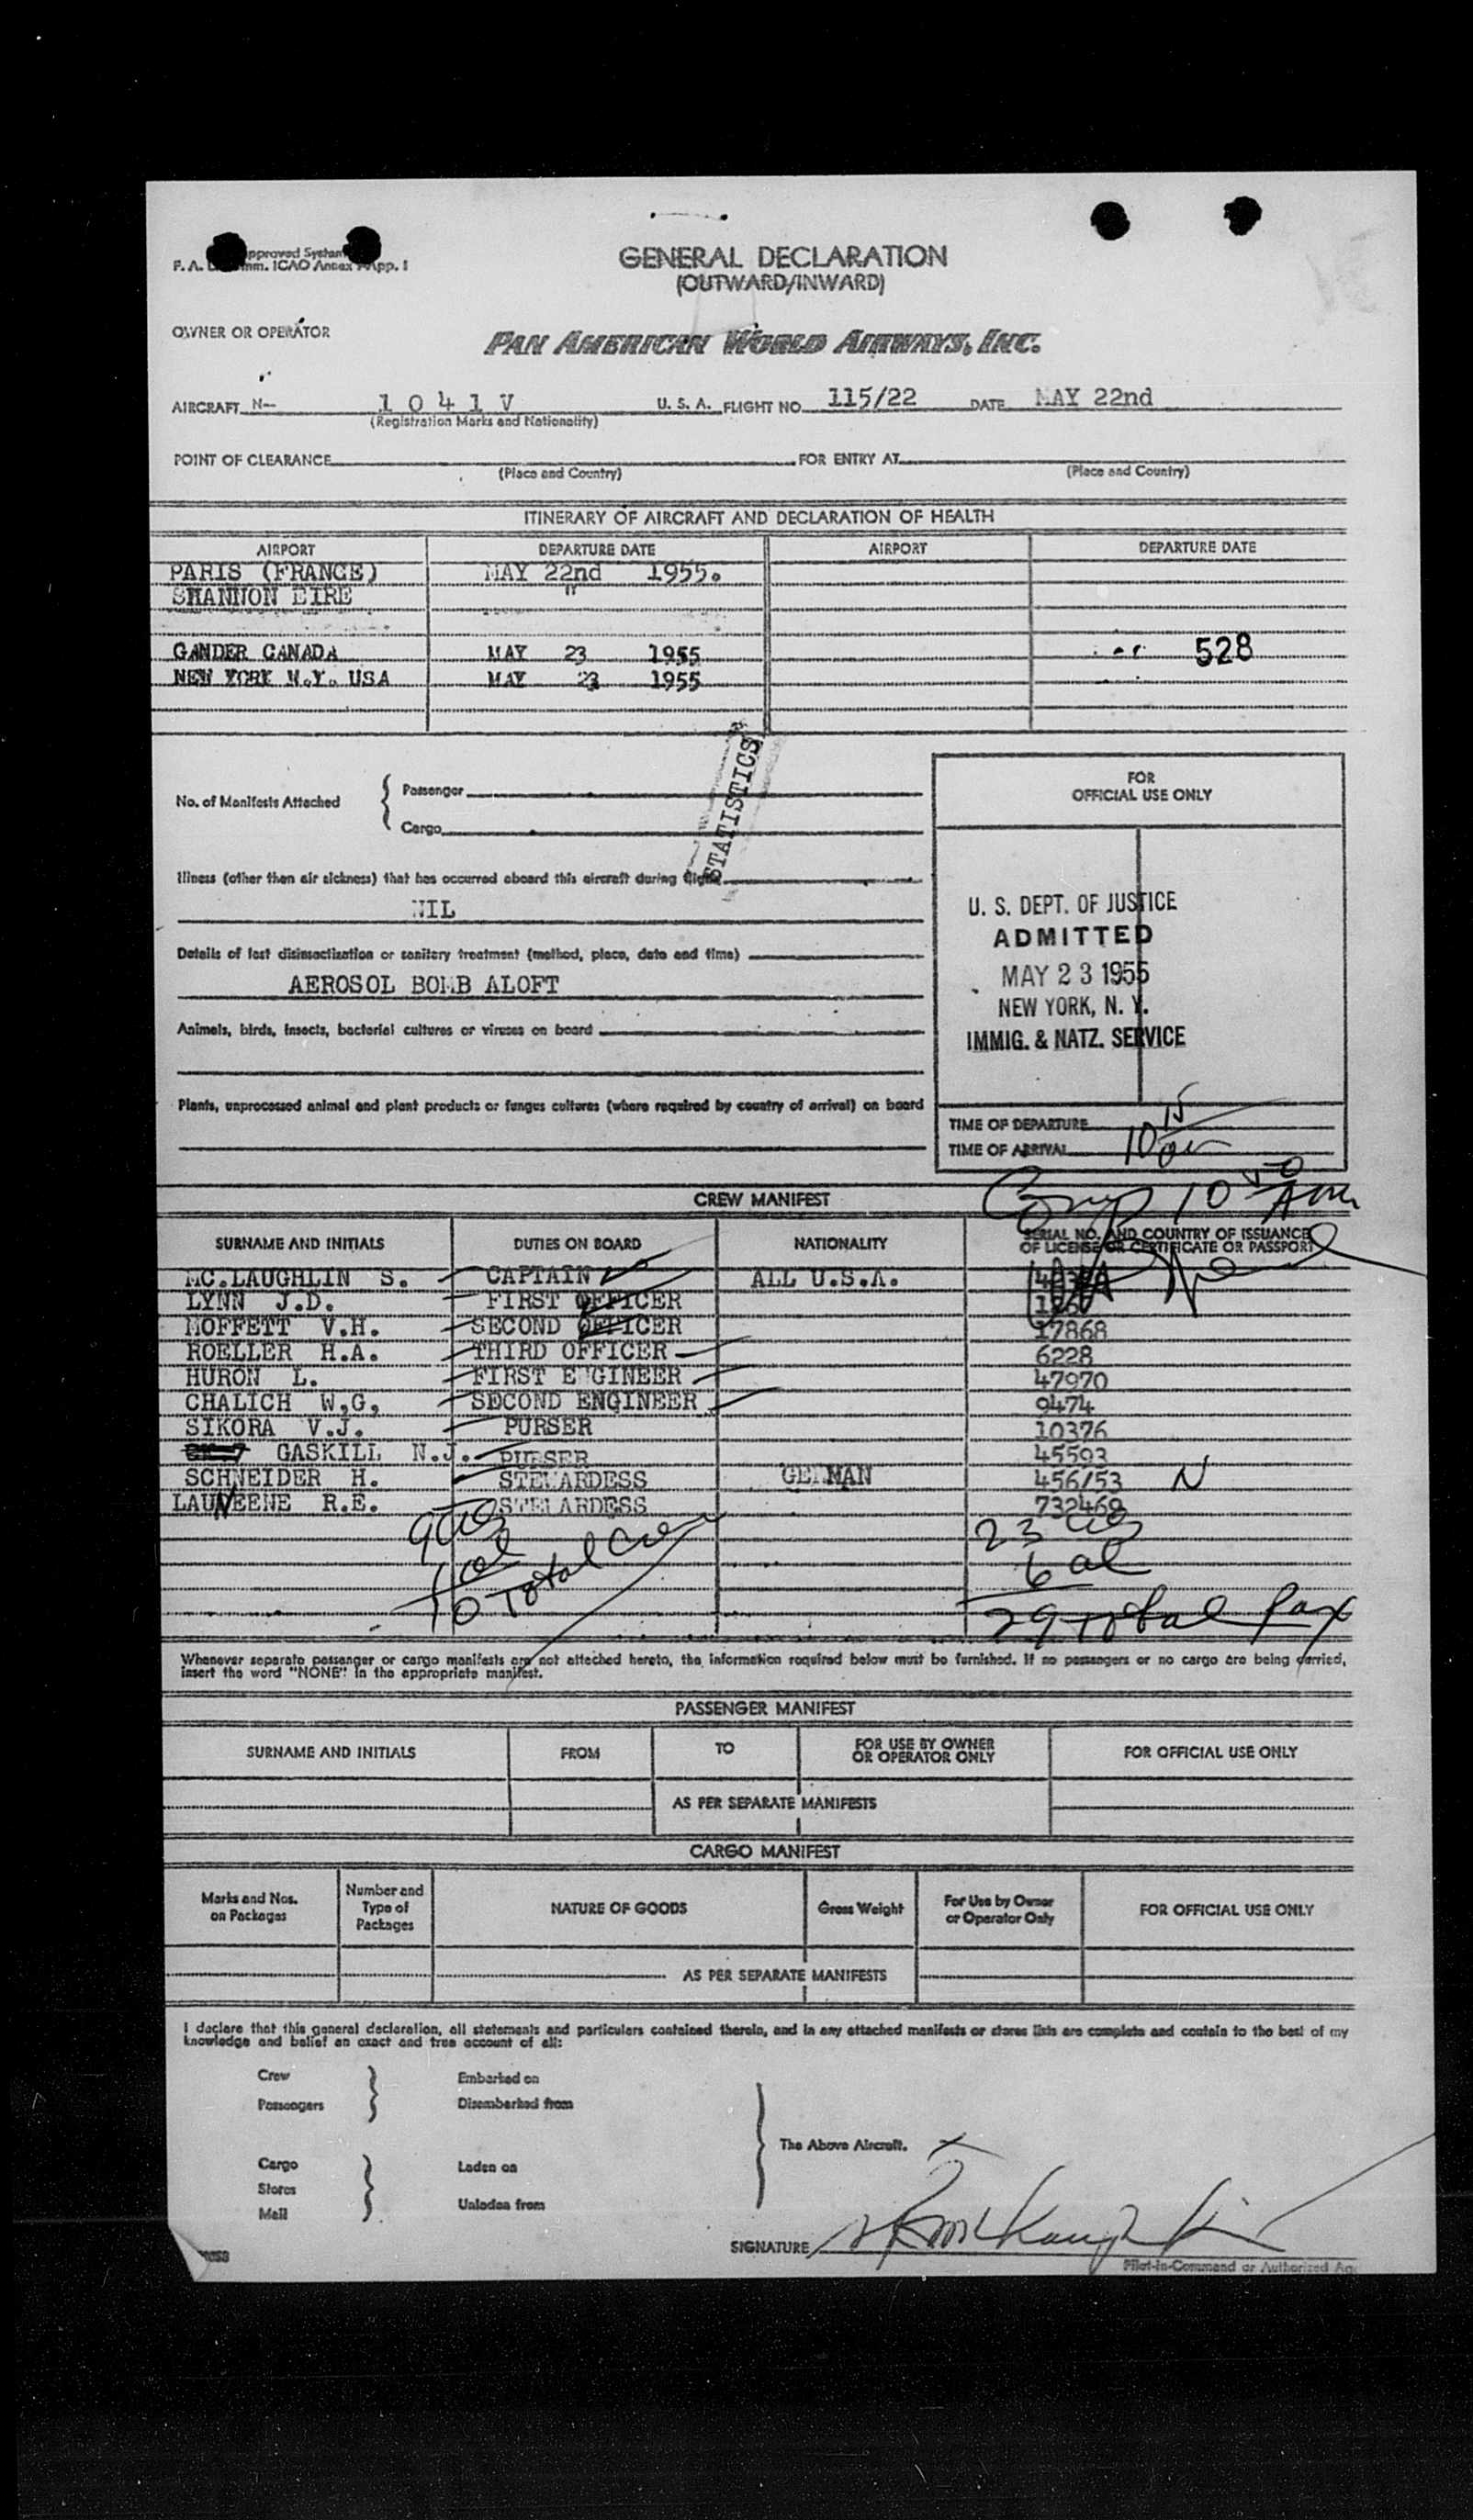 GENERAL DECLARATION
(OUTWARD/INWARD)
F. A. pproved System
mm. ICAO Annex App. 1
OWNER OR OPERATOR PAN AMERICAN WORLD AIRWAYS, INC.
AIRCRAFT N- 1 0 4 1 V U. S. A. FLIGHT NO. 115/22 DATE MAY 22nd
(Registration Marks and Nationality)
POINT OF CLEARANCE FOR ENTRY AT
(Place and Country) (Place and Country)
ITINERARY OF AIRCRAFT AND DECLARATION OF HEALTH
AIRPORT DEPARTURE DATE AIRPORT DEPARTURE DATE
PARIS (FRANCE) MAY 22nd 1955.
SHANNON EIRE "
GANDER CANADA MAY 23 1955 528
NEW YORK N.Y. USA MAY 23 1955
STATISTICS
No. of Manifests Attached { Passenger
Cargo
FOR
OFFICIAL USE ONLY
Illness (other than air sickness) that has occurred aboard this aircraft during flight
NIL
Details of last disinsectization or sanitary treatment (method, place, date and time)
AEROSOL BOMB ALOFT
Animals, birds, insects, bacterial cultures or viruses on board
Plants, unprocessed animal and plant products or fungus cultures (where required by country of arrival) on board
U. S. DEPT. OF JUSTICE
ADMITTED
MAY 23 1955
NEW YORK, N. Y.
IMMIG. & NATZ. SERVICE
TIME OF DEPARTURE
TIME OF ARRIVAL 10 15
Comp 10 50 Am
CREW MANIFEST
SURNAME AND INITIALS DUTIES ON BOARD NATIONALITY SERIAL NO. AND COUNTRY OF ISSUANCE
OF LICENSE OR CERTIFICATE OR PASSPORT
MC.LAUGHLIN S. CAPTAIN ALL U.S.A.
LYNN J.D. FIRST OFFICER
MOFFETT V.H. SECOND OFFICER 17868
ROELLER H.A. THIRD OFFICER 6228
HURON L. FIRST ENGINEER 47970
CHALICH W,G, SECOND ENGINEER 9474
SIKORA V.J. PURSER 10376
GASKILL N.J. PURSER 45593
SCHNEIDER H. STEWARDESS GERMAN 456/53 N
LAUNEENE R.E. STEWARDESS 732469
9 23
1 al 6 al
10 Total Crew 29 Total Pax
Whenever separate passenger or cargo manifests are not attached hereto, the information required below must be furnished. If no passengers or no cargo are being carried,
insert the word "NONE" in the appropriate manifest.
PASSENGER MANIFEST
SURNAME AND INITIALS FROM TO FOR USE BY OWNER
OR OPERATOR ONLY FOR OFFICIAL USE ONLY
AS PER SEPARATE MANIFESTS
CARGO MANIFEST
Marks and Nos.
on Packages Number and
Type of
Packages NATURE OF GOODS Gross Weight For Use by Owner
or Operator Only FOR OFFICIAL USE ONLY
AS PER SEPARATE MANIFESTS
I declare that this general declaration, all statements and particulars contained therein, and in any attached manifests or stores lists are complete and contain to the best of my
knowledge and belief an exact and true account of all:
Crew Embarked on
Passengers Disembarked from
The Above Aircraft.
Cargo Laden on
Stores
Mail Unladen from
SIGNATURE
Pilot-in-Command or Authorized Ag